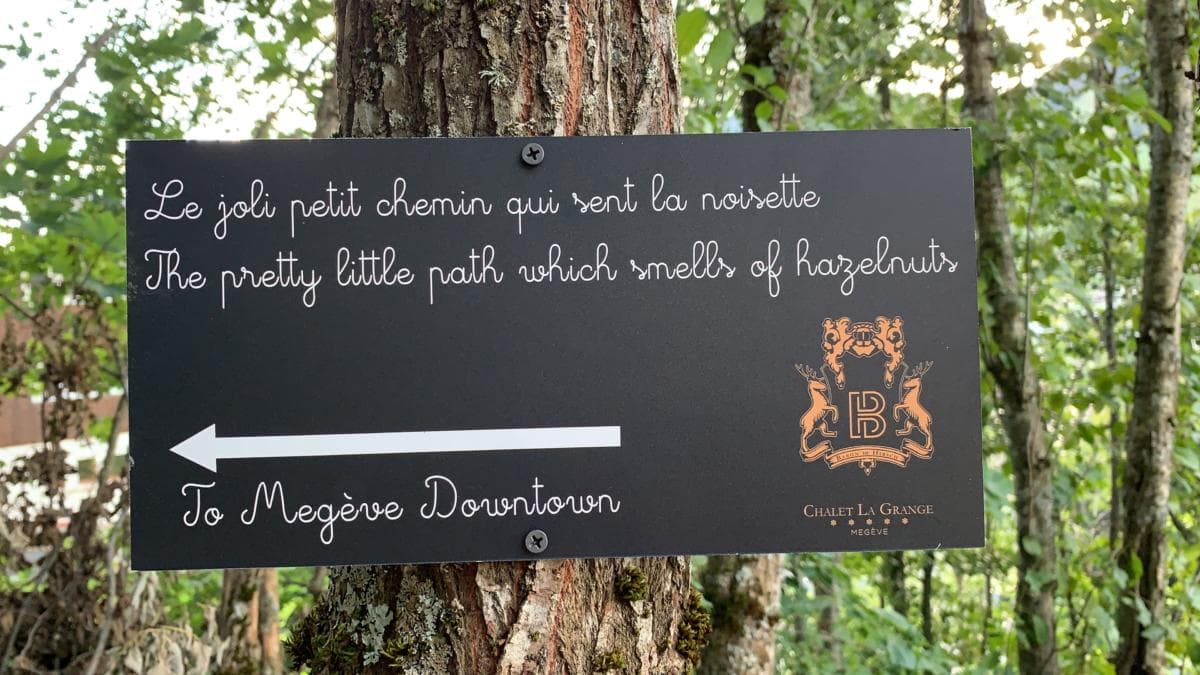 Le joli petit chemin qui sent la noisette
The pretty little path which smells of hazelnuts
To Megève Downtown
B
CHALET LA GRANGE
MEGÈVE